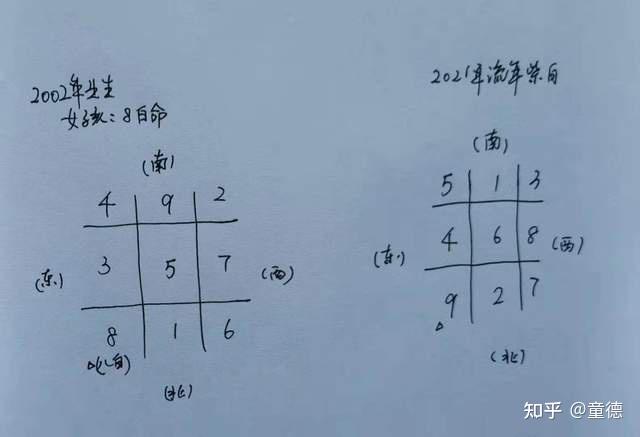 2002年出生
女孩:8白命
(南)
4 9 2
(东) 3 5 7 (西)
8 1 6
△(八白)
(北)
2021年流年紫白
(南)
5 1 3
(东) 4 6 8 (西)
9 2 7
△
(北)
知乎 @童德